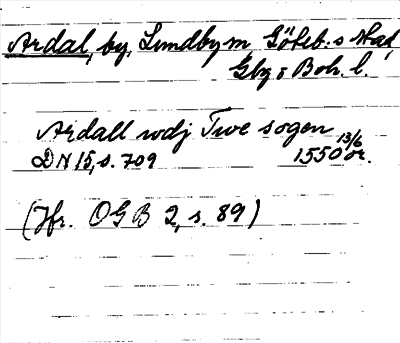 Ardal, by, Lundby sn Göteb:s stad,
Gbg o Boh. l.
Ardall wdj Twe sogen
DN 15, s. 709 1550 13/6 or.
(Jfr. OGB 2, s. 89)